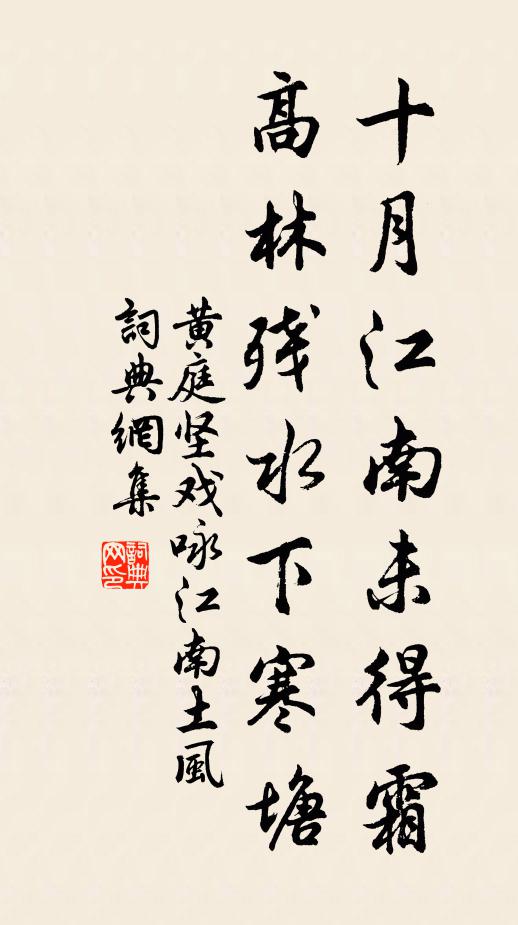 十月江南未得霜
高林残水下寒塘
黄庭坚戏咏江南土風
詞典網集
詞典网印